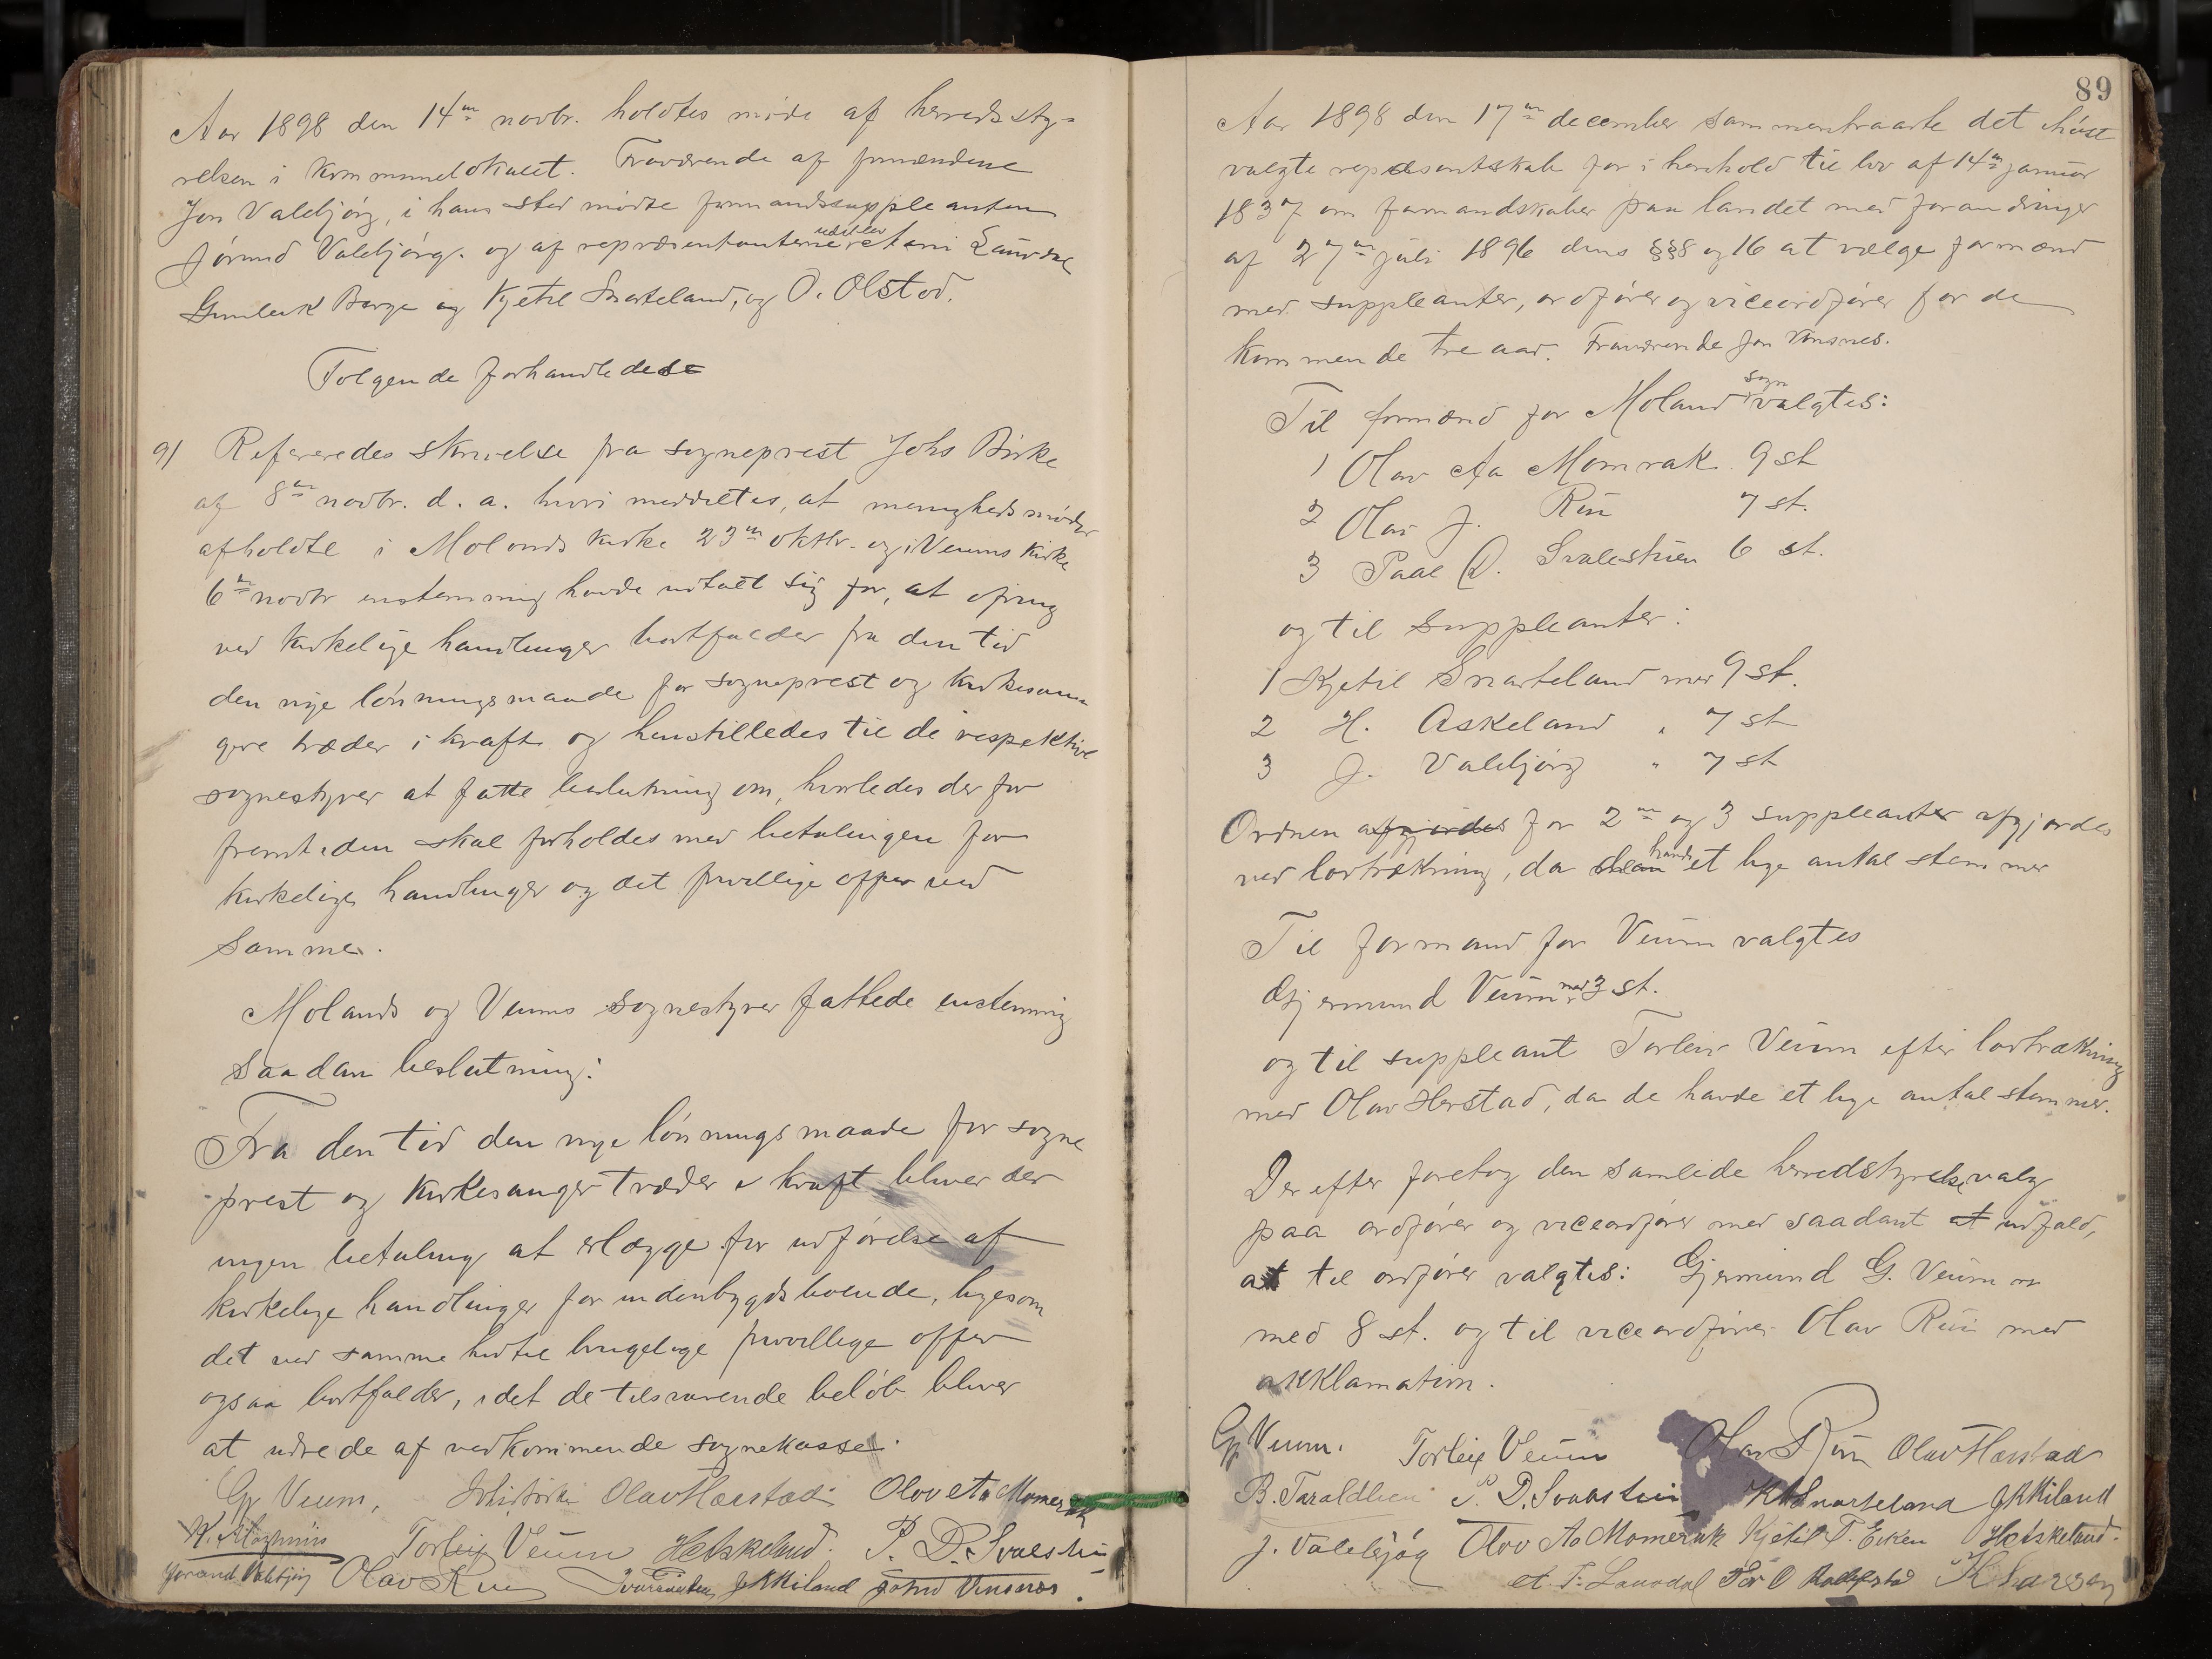 Aar 1898 den 14de novbr. holdtes møde af herredssty-
relsen i kommunelokalet. Fraværende af formændene
Jon Valebjørg, i hans sted mødte formandssuppleanten
Jørund Valebjørg. og af repræsentanterne udeblev Lauvdal
Gunleik Berge og Kjetil Snarteland, og O. Olstad.
Følgende forhandledes
9) Refereredes skrivelse fra sogneprest Johs Birke
af 8de novbr. d. a. hvori meddeltes, at menighedsmøder
afholdte i Molands kirke 23de oktbr. og i Veums kirke
6te novbr enstemmig havde udtalt sig for, at ofring
ved kirkelige handlinger bortfalder fra den tid
den nye lønningsmaade for sogneprest og kirkesan-
gere træder i kraft og henstilledes til de respektive
sognestyrer at fatte beslutning om, hvorledes der for
fremtiden skal forholdes med betalingen for
kirkelige handlinger og det frivillige offer ved
samme.
Molands og Veums sognestyrer fattede enstemmig
saadan beslutning:
Fra den tid den nye lønningsmaade for sogne
prest og kirkesanger træder i kraft bliver der
ingen betaling at erlægge for udførelse af
kirkelige handlinger for indenbygds boende, ligesom
det ved samme hidtil brugelige frivillige offer
ogsaa bortfalder, idet de tilsvarende beløb bliver
at udrede af vedkommende sognekasse.
Gj Veum, Olav Hærstad Olav Aa Momrak
Torleiv Veum H Askeland. P. D. Svalestu
Jørand Valebjørg Olav Rui J K Kiland John Vinsnes.
89
Aar 1898 den 17de december sammentraadte det ihøst
valgte repræsentskab for i henhold til lov af 14de januar
1837 om formandskaber paa landet med forandringer
af 27de juli 1896 dens §§8 og 16 at vælge formænd
med suppleanter, ordfører og viceordfører for de
kommende tre aar. Fraværende Jon Vinsnes.
Til formænd for Moland sogn valgtes:
1 Olav Aa Momrak 9 st
2 Olav J. Rui 7 st.
3 Paal D. Svalestuen 6 st.
og til suppleanter:
1 Kjetil Snarteland med 9 st.
2 H. Askeland " 7 st
3 J. Valebjørg " 7 st
Ordnen afgjordes for 2den og 3 suppleanter afgjordes
ved lodtrækning, da havde et lige antal stemmer
Til formand for Veum valgtes
Gjermund Veum med 3 st.
og til suppleant Torleiv Veum efter lodtrækning
med Olav Herstad, da de havde et lige antal stemmer.
Derefter foretog den samlede herredstyrelse valg
paa ordfører og viceordfører med saadant at udfald,
at til ordfører valgtes: Gjermund G. Veum
med 8 st. og til viceordfører Olav Rui med
akklamation.
Gj Veum. Torleiv Veum Olav Rui Olav Hærstad
B. Taraldlien P. D. Svalestuen K Snarteland J K Kiland
J. Valebjøg Olav Aa Momrak Kjetil T. Eiken H Askeland.
A. T. Lauvdal